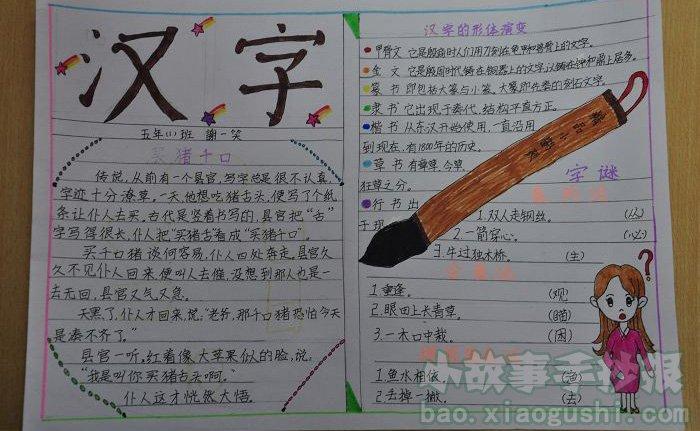 汉字
五年(1)班 谢一笑
买猪千口
传说，从前有一个县官，写字总是很不认真，
字迹十分潦草。一天他想吃猪舌头，便写了个纸
条让仆人去买。古代是竖着书写的，县官把“舌”
字写得很长，仆人把“买猪舌”看成“买猪千口”。
买千口猪谈何容易，仆人四处奔走。县官久
久不见仆人回来，便叫人去催，没想到那人也是一
去无回，县官又气又急。
天黑了，仆人才回来，说：“老爷，那千口猪恐怕今天
是凑不齐了。”
县官一听，红着像大苹果似的脸，说：
“我是叫你买猪舌头啊。”
仆人这才恍然大悟。
汉字的形体演变
甲骨文 它是殷商时人们用刀刻在龟甲和兽骨上的文字。
金 文 它是殷周时代铸在铜器上的文字，以铸在钟和鼎上居多。
篆 书 即包括大篆与小篆，大篆即先秦的刻石文字。
隶 书 它出现于秦代，结构平直方正。
楷 书 从东汉开始使用，一直沿用
到现在，有1800年的历史。
草 书 有章草、今草、
狂草之分。
行 书 出
于现
字谜
1.双人走钢丝。 (丛)
2.一箭穿心。 (必)
3.牛过独木桥。 (生)
1.重逢。 (观)
2.眼田上长青草。 (瞄)
3.一木口中栽。 (困)
1.鱼水相依。 (渔)
2.丢掉一撇。 (去)
小故事手抄报
bao.xiaogushi.com